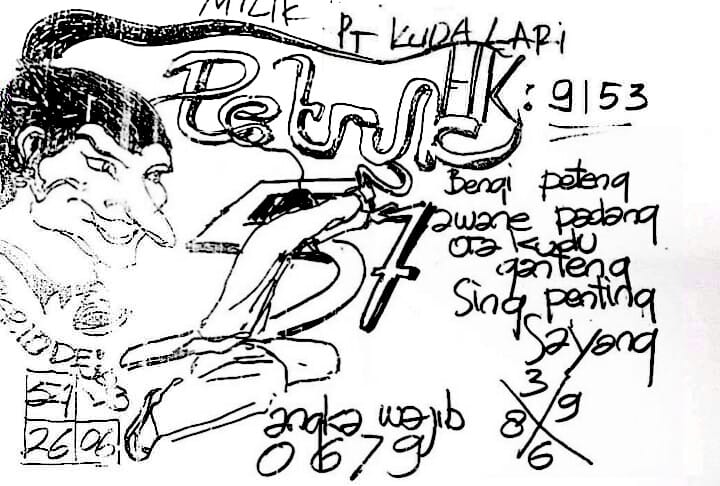 MILIK
PT KUDA LARI
Petruk
HK: 9153
Bengi peteng
awane padang
ora kudu
ganteng
Sing penting
Sayang
57
3
8 9
6
angka wajib
0679
26 06